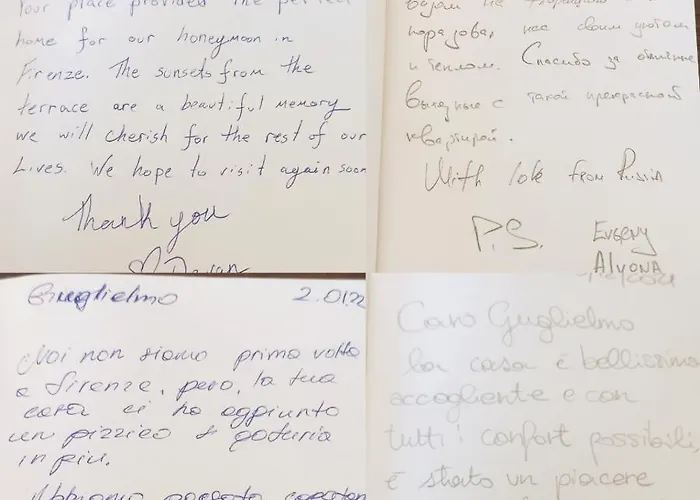 Your place provided the perfect
home for our honeymoon in
Firenze. The sunsets from the
terrace are a beautiful memory
we will cherish for the rest of our
Lives. We hope to visit again soon
Thank you
поразова, нас своим уютом
и теплом. Спасибо за отличные
выходные с такой прекрасной
квартирой.
With love from Russia
P.S. Evgeny
Alyona
Guglielmo 2.01.22
Noi non siamo prima volta
a Firenze, pero, la tua
casa ci ha aggiunto
un pizzico di goduria
in piu.
Abbiamo passato
Caro Guglielmo
la casa è bellissima
accogliente e con
tutti i confort possibili,
è stato un piacere